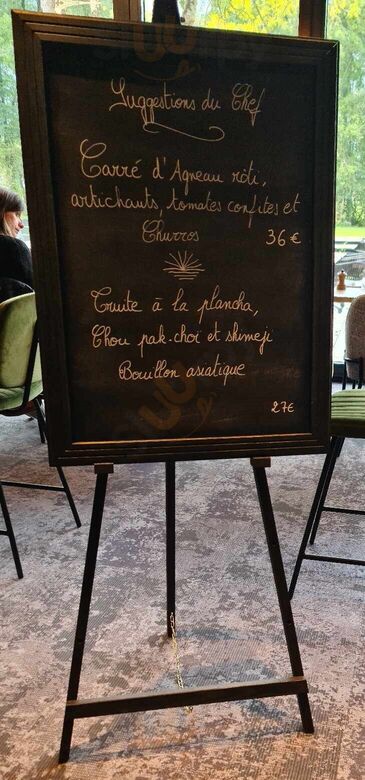 Suggestions du Chef
Carré d'Agneau rôti,
artichauts, tomates confites et
Churros 36 €
Truite à la plancha,
Chou pak-choï et shimeji
Bouillon asiatique
27€